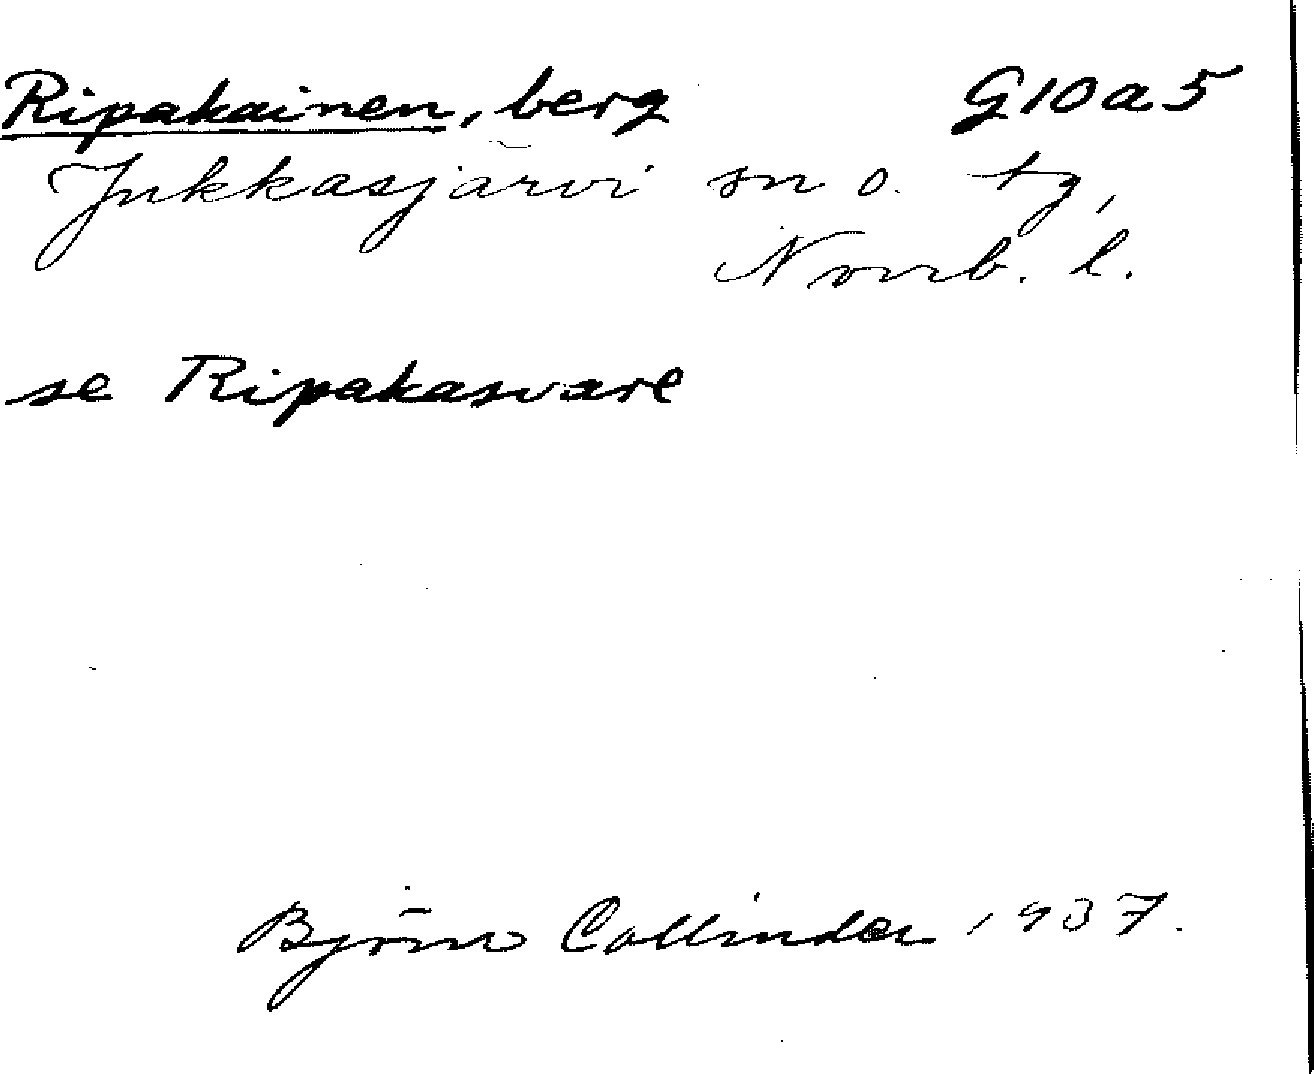 Ripakainen, berg G10a5
Jukkasjärvi sn o. tg,
Norrb. l.
se Ripakasvare
Björn Collinder 1937.